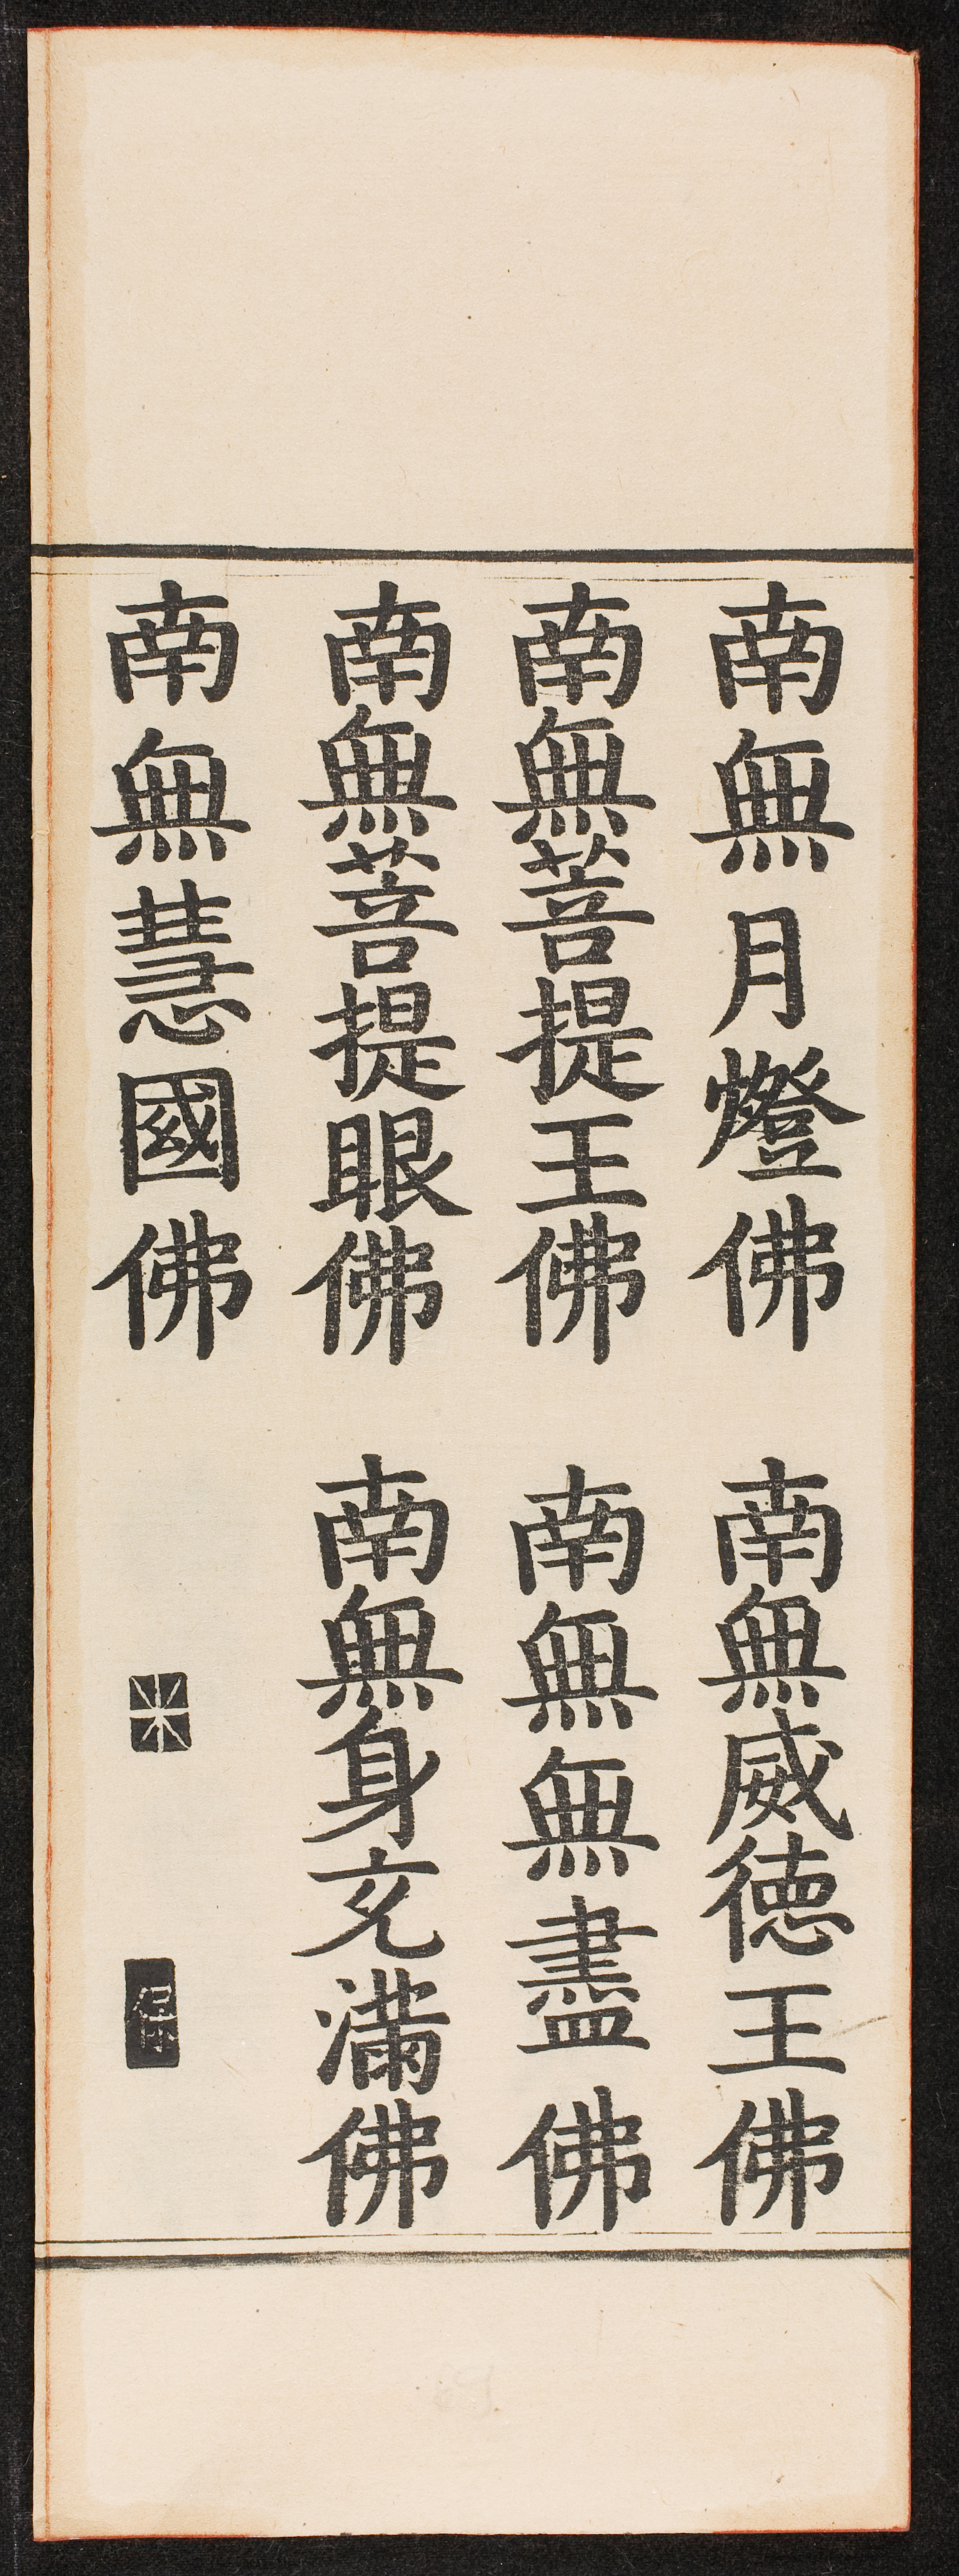 南無月燈佛　南無威德王佛
南無菩提王佛　南無無盡佛
南無菩提眼佛　南無身充滿佛
南無慧國佛